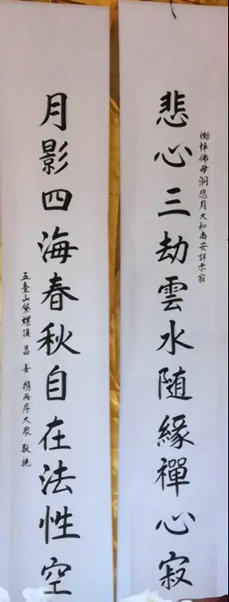 慟悼佛母洞悲月大和尚安詳示寂
悲心三劫雲水随緣禪心寂
月影四海春秋自在法性空
五臺山黛螺頂 昌善 携兩序大衆 敬挽